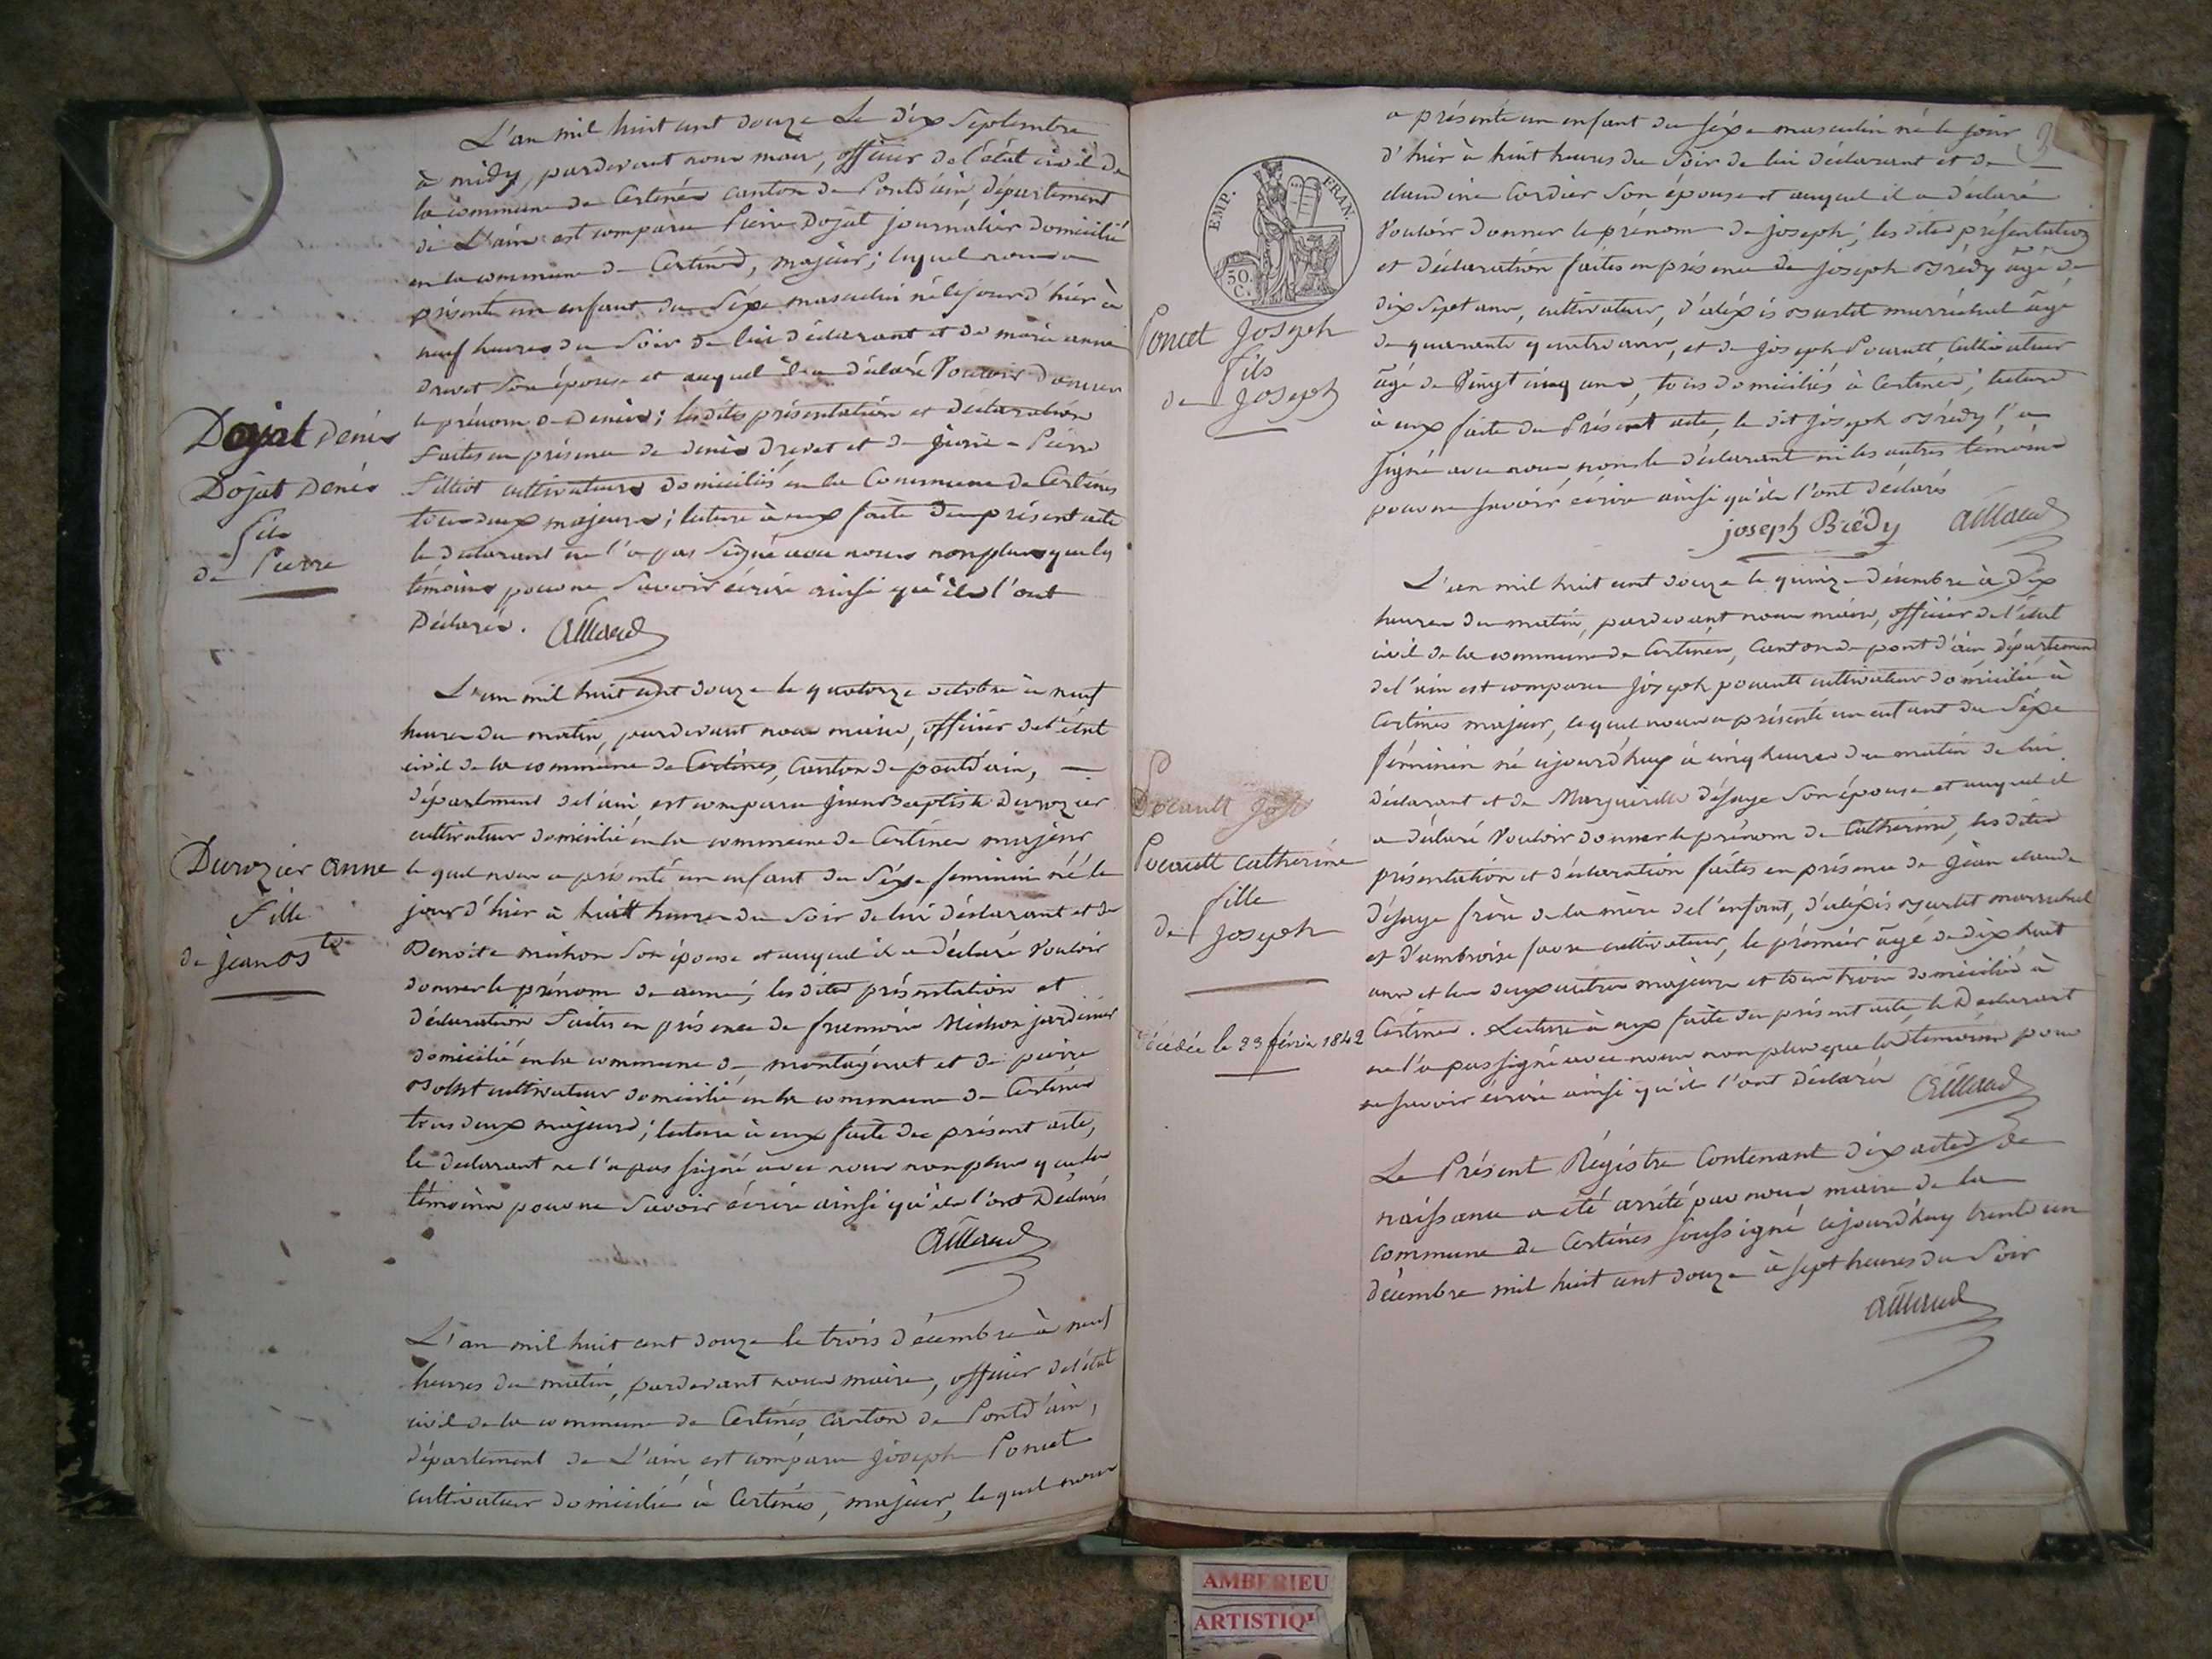 L'an mil huit cent douze Le dix Septembre
à midy, pardevant nous maire, officier de l'état civil de
la commune de Certines canton de Pontd'ain, département
de L'ain est comparu Pierre Dojat journalier domicilié
en la commune de Certines, majeur; lequel nous a
présenté un enfant du Séxe masculin né le jour d'hier à
neuf heures du Soir de lui déclarant et de marie anne
drevet Son épouse et auquel il a déclaré Vouloir donner
le prénom de Denis; les dites présentation et déclaration
faites en présence de denis drevet et de Pierre
cultivateurs domiciliés en la Commune de Certines
tous deux majeurs; lecture à eux faite du présent acte
le déclarant ne l'a pas Signé avec nous non plus que les
témoins pour ne Savoir écrire ainsi qu'ils l'ont
Déclarés. Aillaud
Dojat Denis
Dojat Denis
fils
de Pierre
L'an mil huit cent douze le quatorze octobre à neuf
heures du matin, pardevant nous maire, officier de l'état
civil de la commune de Certines, Canton de pontd'ain, —
département de l'ain est comparu jean Baptiste Durozier
cultivateur domicilié en la commune de Certines majeur
le quel nous a présenté un enfant du Séxe féminin né le
jour d'hier à huit heures du Soir de lui déclarant et de
Benoite michon Son épouse et auquel il a déclaré Vouloir
donner le prénom de anne; les dites présentation et
déclaration faites en présence de Michon jardinier
domicilié en la commune de montagnat et de pierre
cultivateur domicilié en la commune de Certines
tous deux majeurs; lecture à eux faite du présent acte,
le déclarant ne l'a pas signé avec nous non plus que les
témoins pour ne Savoir écrire ainsi qu'ils l'ont Déclarés
Aillaud
Durozier Anne
Fille
de jean Bte
L'an mil huit cent douze le trois décembre à neuf
heures du matin, pardevant nous maire, officier de l'état
civil de la commune de Certines, Canton de Pontd'ain,
département de L'ain est comparu joseph Poncet
cultivateur domicilié à Certines, majeur, le quel nous
3
a présenté un enfant du séxe masculin né le jour
d'hier à huit heures du Soir de lui déclarant et de
claudine Cordier Son épouse et auquel il a déclaré
Vouloir donner le prénom de joseph; les dites présentation
et déclaration faites en présence de joseph Brédy âgé de
dix Sept ans, cultivateur, d'aléxis Burtet marréchal âgé
de quarante quatre ans, et de joseph Pocault Cultivateur
âgé de Vingt cinq ans, tous domiciliés à Certines; lecture
à eux faite du Présent acte, le dit joseph Brédy l'a
signé avec nous, non le déclarant ni les autres témoins
pour ne savoir écrire ainsi qu'ils l'ont déclarés
joseph Brédy Aillaud
EMP. FRAN.
50 C.
Poncet Joseph
fils
de Joseph
L'an mil huit cent douze le quinze décembre à Dix
heures du matin, pardevant nous maire, officier de l'état
civil de la commune de Certines, Canton de pont d'ain département
de l'ain est comparu joseph pocault cultivateur domicilié à
Certines majeur, lequel nous a présenté un enfant du Séxe
féminin né cejourd'huy à cinq heures du matin de lui
déclarant et de Marguerite désaye Son épouse et auquel il
a déclaré Vouloir donner le prénom de Catherine, les dites
présentation et déclaration faites en présence de jean claude
désaye frère de la mère de l'enfant, d'aléxis Burtet marréchal
et d'ambroise favre cultivateur, le prémier âgé de dix huit
ans et les deux autres majeurs et tous trois domiciliés à
Certines. Lecture à eux faite du présent acte, le Déclarant
ne l'a pas signé avec nous non plus que les témoins pour
ne savoir écrire ainsi qu'ils l'ont Déclarés Aillaud
Pocault Jos
Pocault Catherine
fille
de Joseph
Décédée le 23 février 1842
Le Présent Régistre Contenant dix actes de
naissance a été arrété par nous maire de la
commune de Certines soussigné cejourd'huy trente un
décembre mil huit cent douze à sept heures du Soir
Aillaud
AMBERIEU
ARTISTIQU